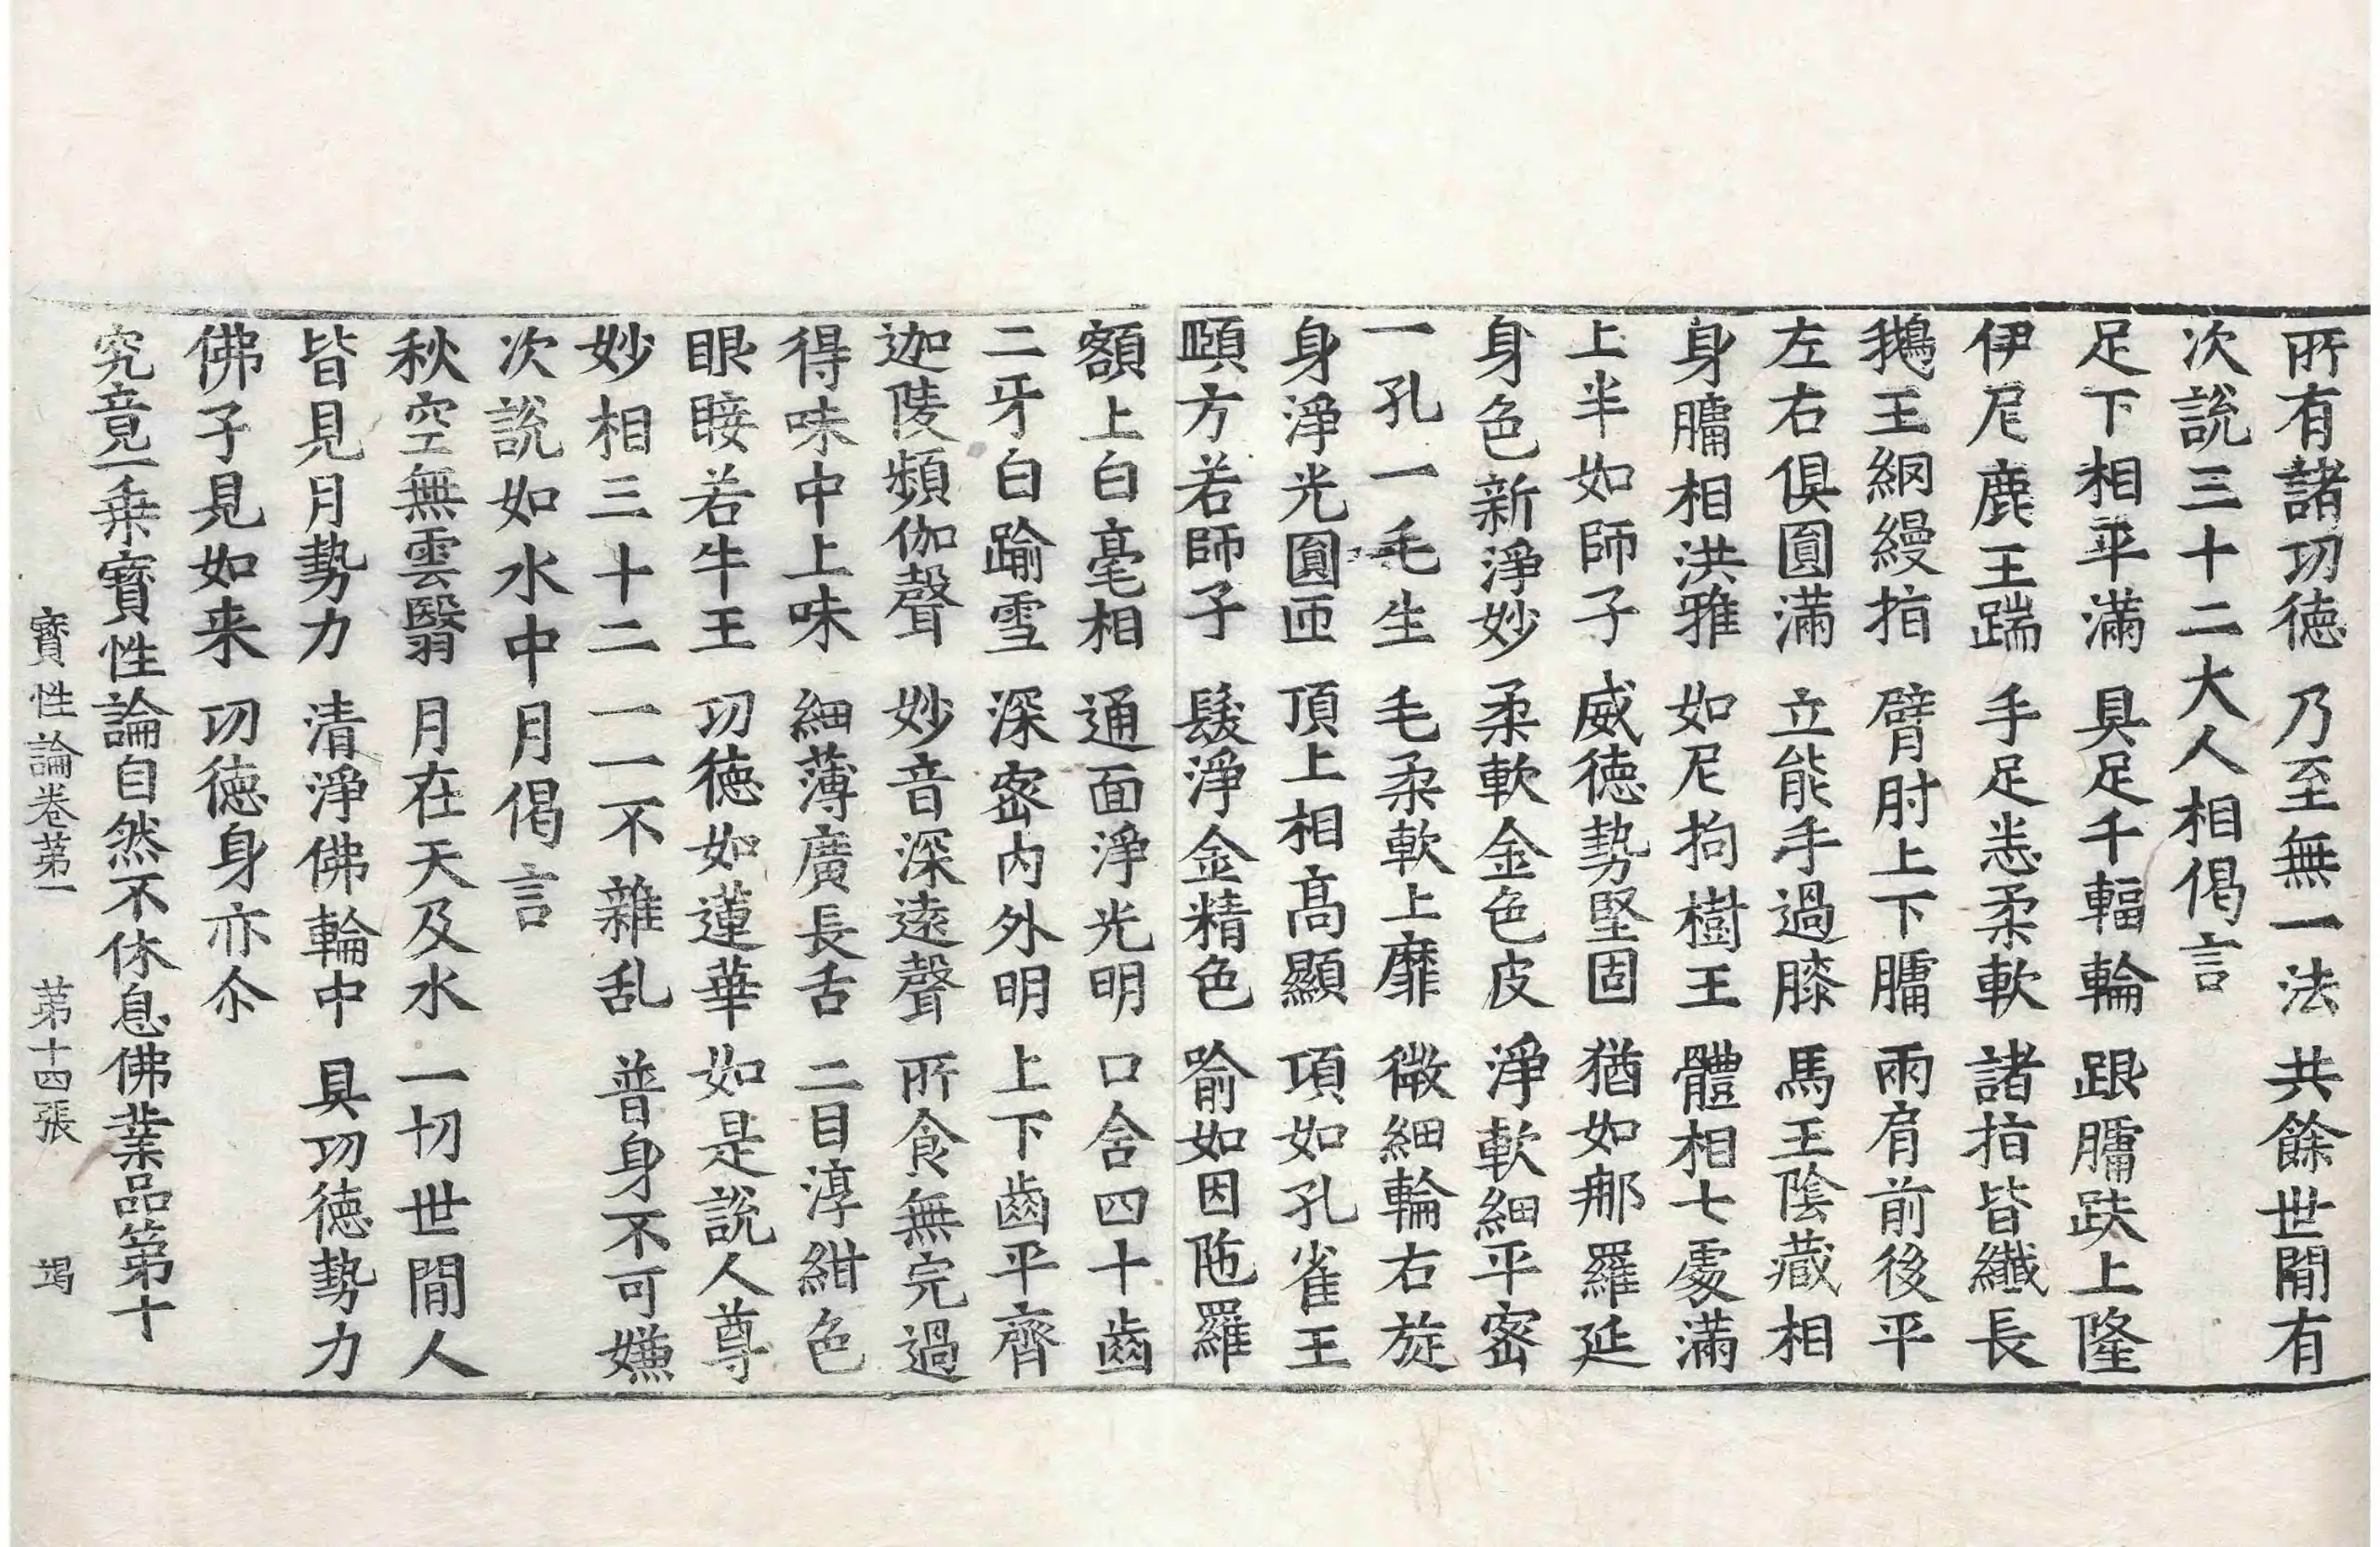 所有諸功徳 乃至無一法 共餘世間有
次說三十二大人相偈言
足下相平滿 具足千輻輪 跟𦟛趺上隆
伊尼鹿王踹 手足悉柔軟 諸指皆纎長
鵝王網縵指 臂肘上下𦟛 兩肩前後平
左右俱圓滿 立能手過膝 馬王陰藏相
身𦟛相洪雅 如尼拘樹王 體相七處滿
上半如師子 威徳勢堅固 猶如那羅延
身色新淨妙 柔軟金色皮 淨軟細平密
一孔一毛生 毛柔軟上靡 微細輪右旋
身淨光圓匝 頂上相髙顯 項如孔雀王
頤方若師子 髮淨金精色 喻如因陁羅
額上白毫相 通面淨光明 口含四十齒
二牙白踰雪 深密内外明 上下齒平齊
迦陵頻伽聲 妙音深遠聲 所食無完過
得味中上味 細薄廣長舌 二目淳紺色
眼睫若牛王 功徳如蓮華 如是說人尊
妙相三十二 一一不雜乱 普身不可嫌
次說如水中月偈言
秋空無雲翳 月在天及水 一切世間人
皆見月勢力 清淨佛輪中 具功徳勢力
佛子見如来 功徳身亦尒
究竟一乗寶性論自然不休息佛業品第十
寶性論卷苐一 苐十四張 竭